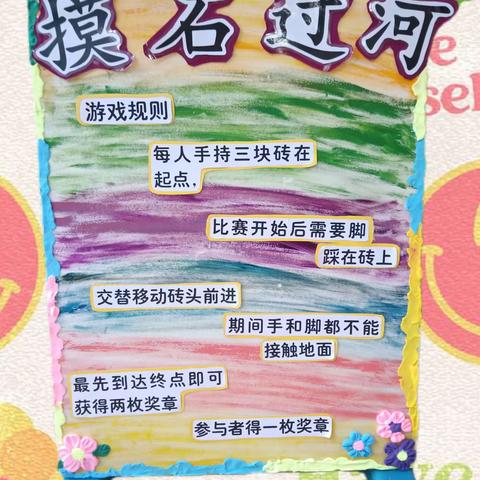 摸石过河
游戏规则
每人手持三块砖在
起点，
比赛开始后需要脚
踩在砖上
交替移动砖头前进
期间手和脚都不能
接触地面
最先到达终点即可
获得两枚奖章
参与者得一枚奖章